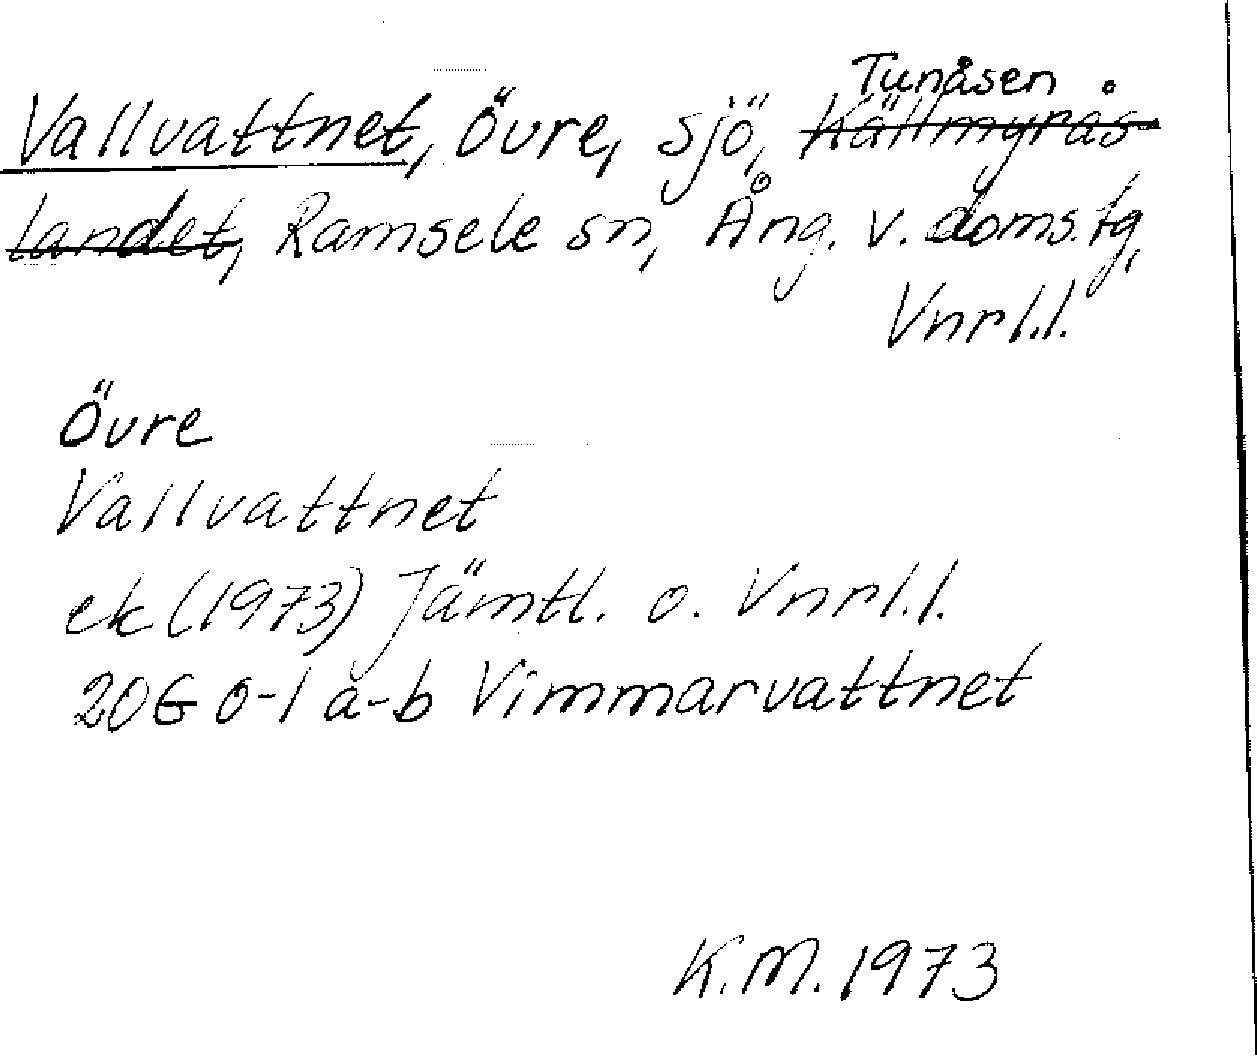 Tunåsen
Vallvattnet, Övre, sjö, Källmyrås-
landet, Ramsele sn, Ång. v. doms.tg,
Vnrl.l.
Övre
Vallvattnet
ek (1973) Jämtl. o. Vnrl.l.
20G 0-1 a-b Vimmarvattnet
K.M. 1973